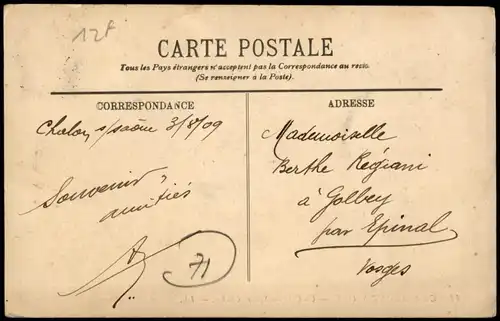 12F
CARTE POSTALE
Tous les Pays étrangers n'acceptent pas la Correspondance au recto.
(Se renseigner à la Poste).
CORRESPONDANCE
Chalon s/saône 3/8/09
Souvenirs
amitiés
71
ADRESSE
Mademoiselle
Berthe Regiani
à Golbey
par Epinal
Vosges